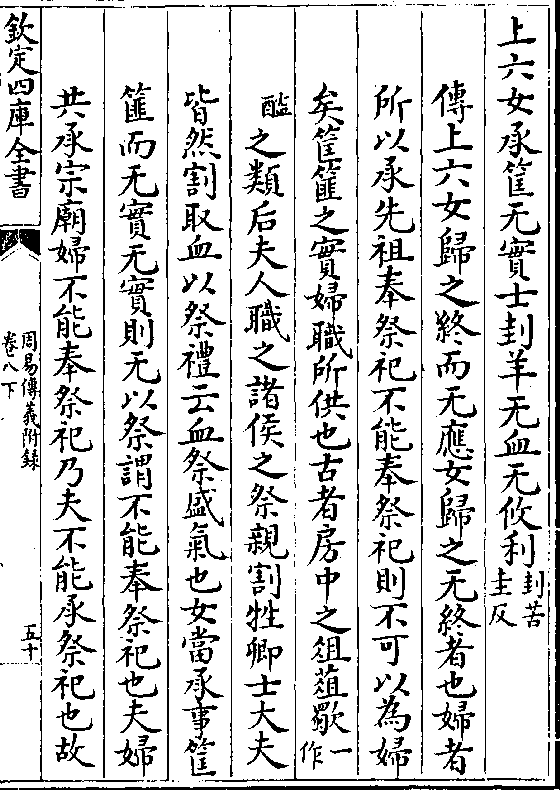 上六女承筐无實士刲羊无血无攸利刲苦圭反
傳上六女歸之終而无應女歸之无終者也婦者
所以承先祖奉祭祀不能奉祭祀則不可以為婦
矣筐篚之實婦職所供也古者房中之俎菹歜一作
醢之類后夫人職之諸侯之祭親割牲卿士大夫
皆然割取血以祭禮云血祭盛氣也女當承事筐
篚而无實无實則无以祭謂不能奉祭祀也夫婦
共承宗廟婦不能奉祭祀乃夫不能承祭祀也故
欽定四庫全書
周易傳義附錄
卷八下
五十